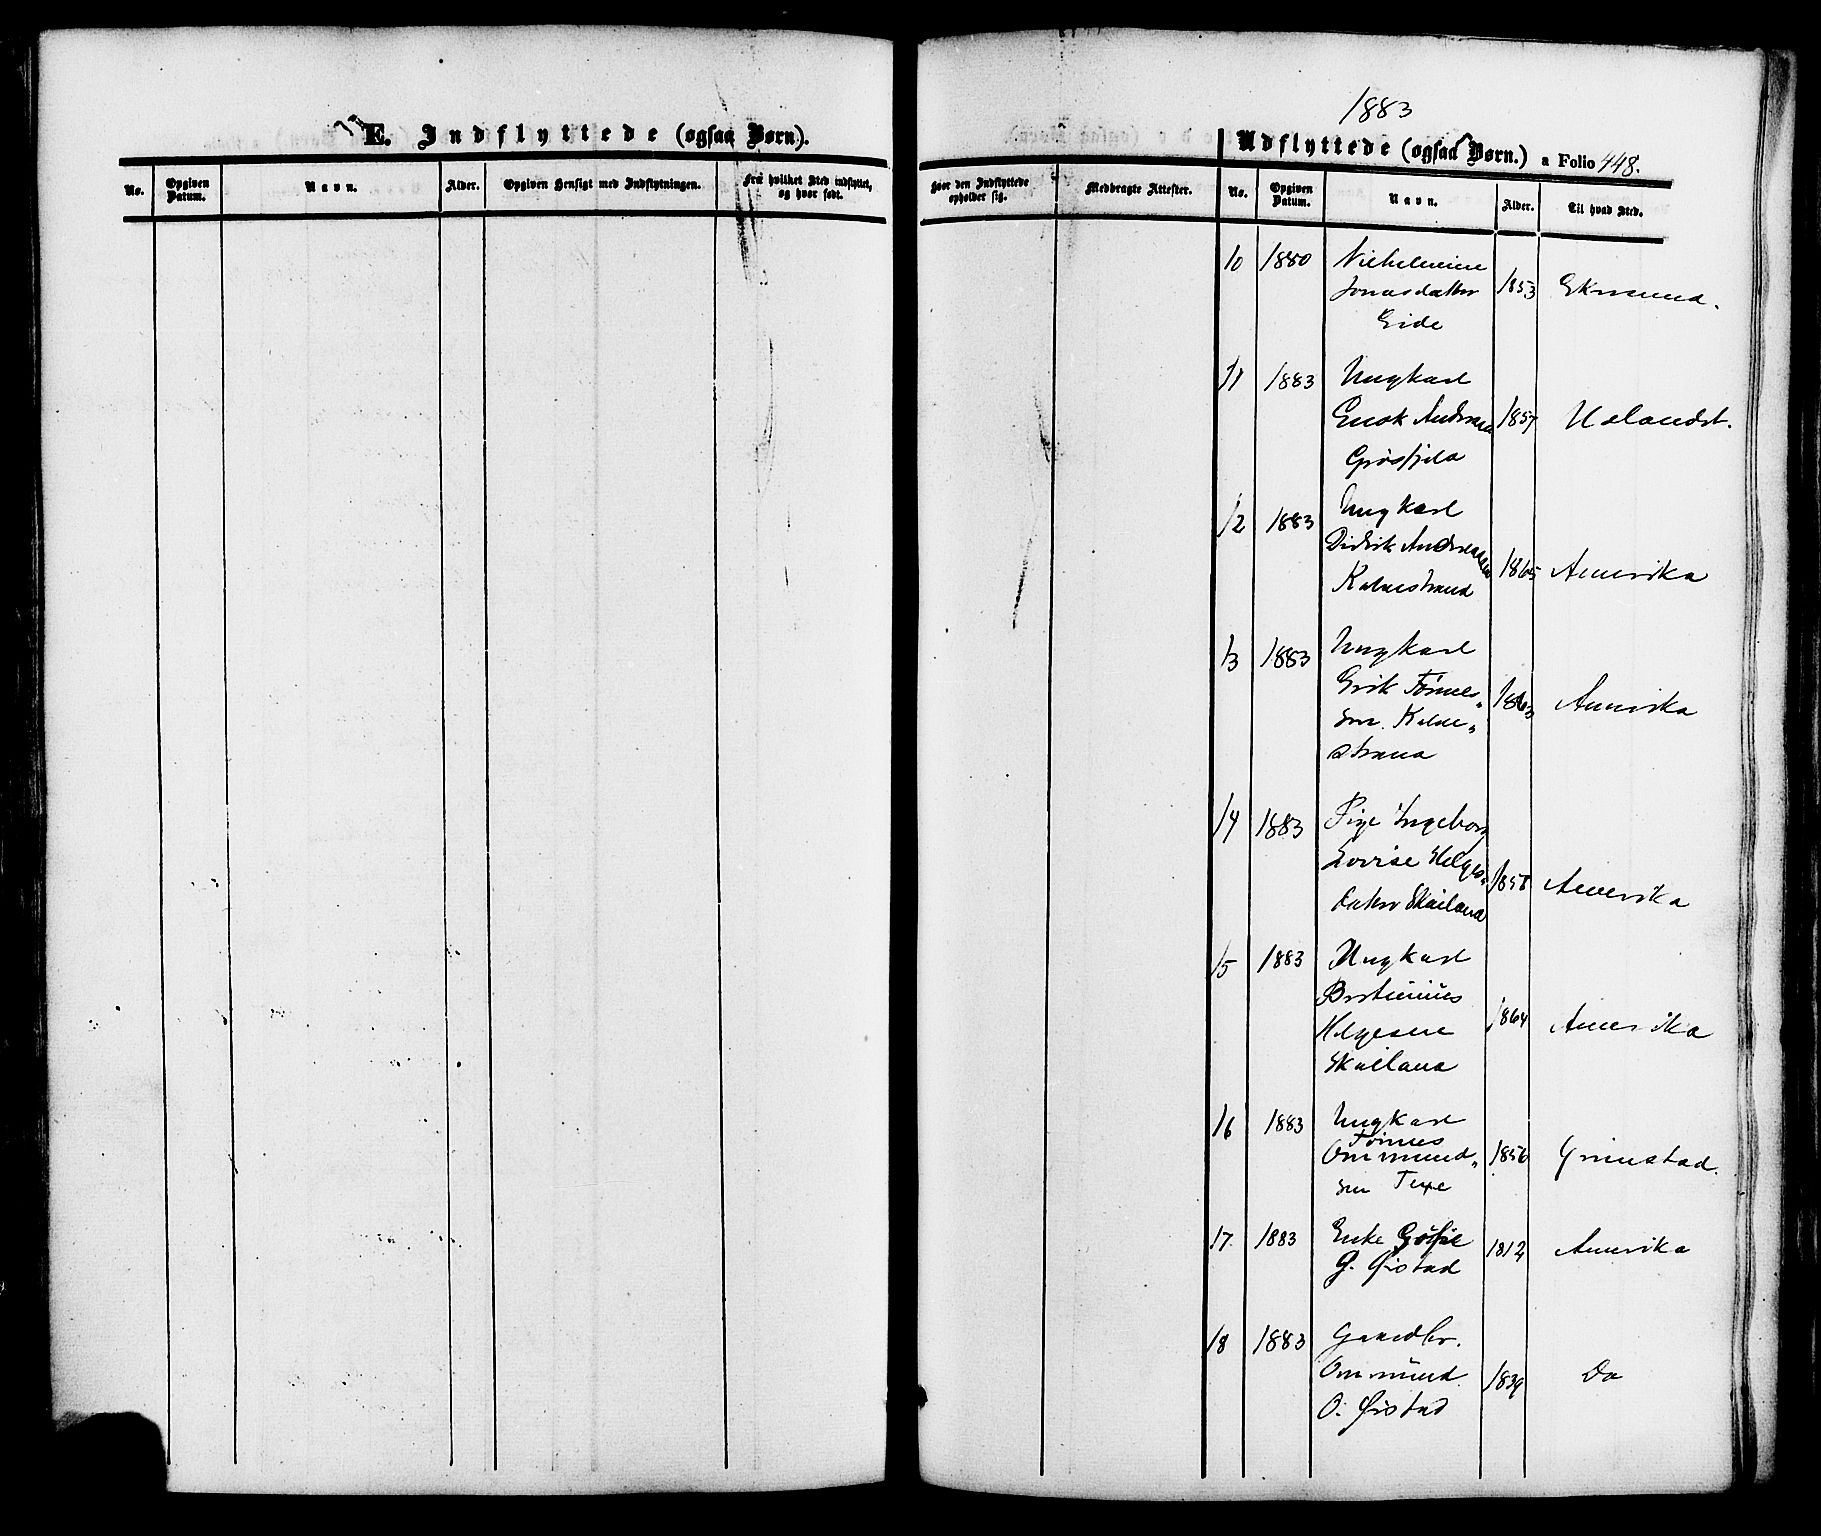 E. Indflyttede (ogsaa Børn).
No.
Opgiven Datum.
Navn.
Alder.
Opgiven Hensigt med Indflytningen.
Fra hvilket Sted indflyttet, og hvor født.
1883
Udflyttede (ogsaa Børn.) a Folio 448.
Hvor den Indflyttede opholder sig.
Medbragte Attester.
No.
Opgiven Datum.
Navn.
Alder.
Til hvad Sted.
10 1880 Vilhelmine
Jonasdatter 1853 Ekersund.
Eide
11 1883 Ungkarl
Enok Andreas 1857 Holandst.
Grøsfjeld
12 1883 Ungkarl
Didrik Andreassen 1865 Amerika
Kalvestrand
13 1883 Ungkarl
Erik Tønnes- 1863 Amerika
sen. Kalve-
strand
14 1883 Pige Ingeborg
Lovise Helges- 1858 Amerika
datter Skailand
15 1883 Ungkarl
Helgesen 1864 Amerika
Skailand
16 1883 Ungkarl
Tønnes
Ommund- 1856 Grimstad.
sen
17. 1883 Enke
G. Øistad 1812 Amerika
18 1883 Gaardbr.
Ommund 1839 Do
O. Øistad